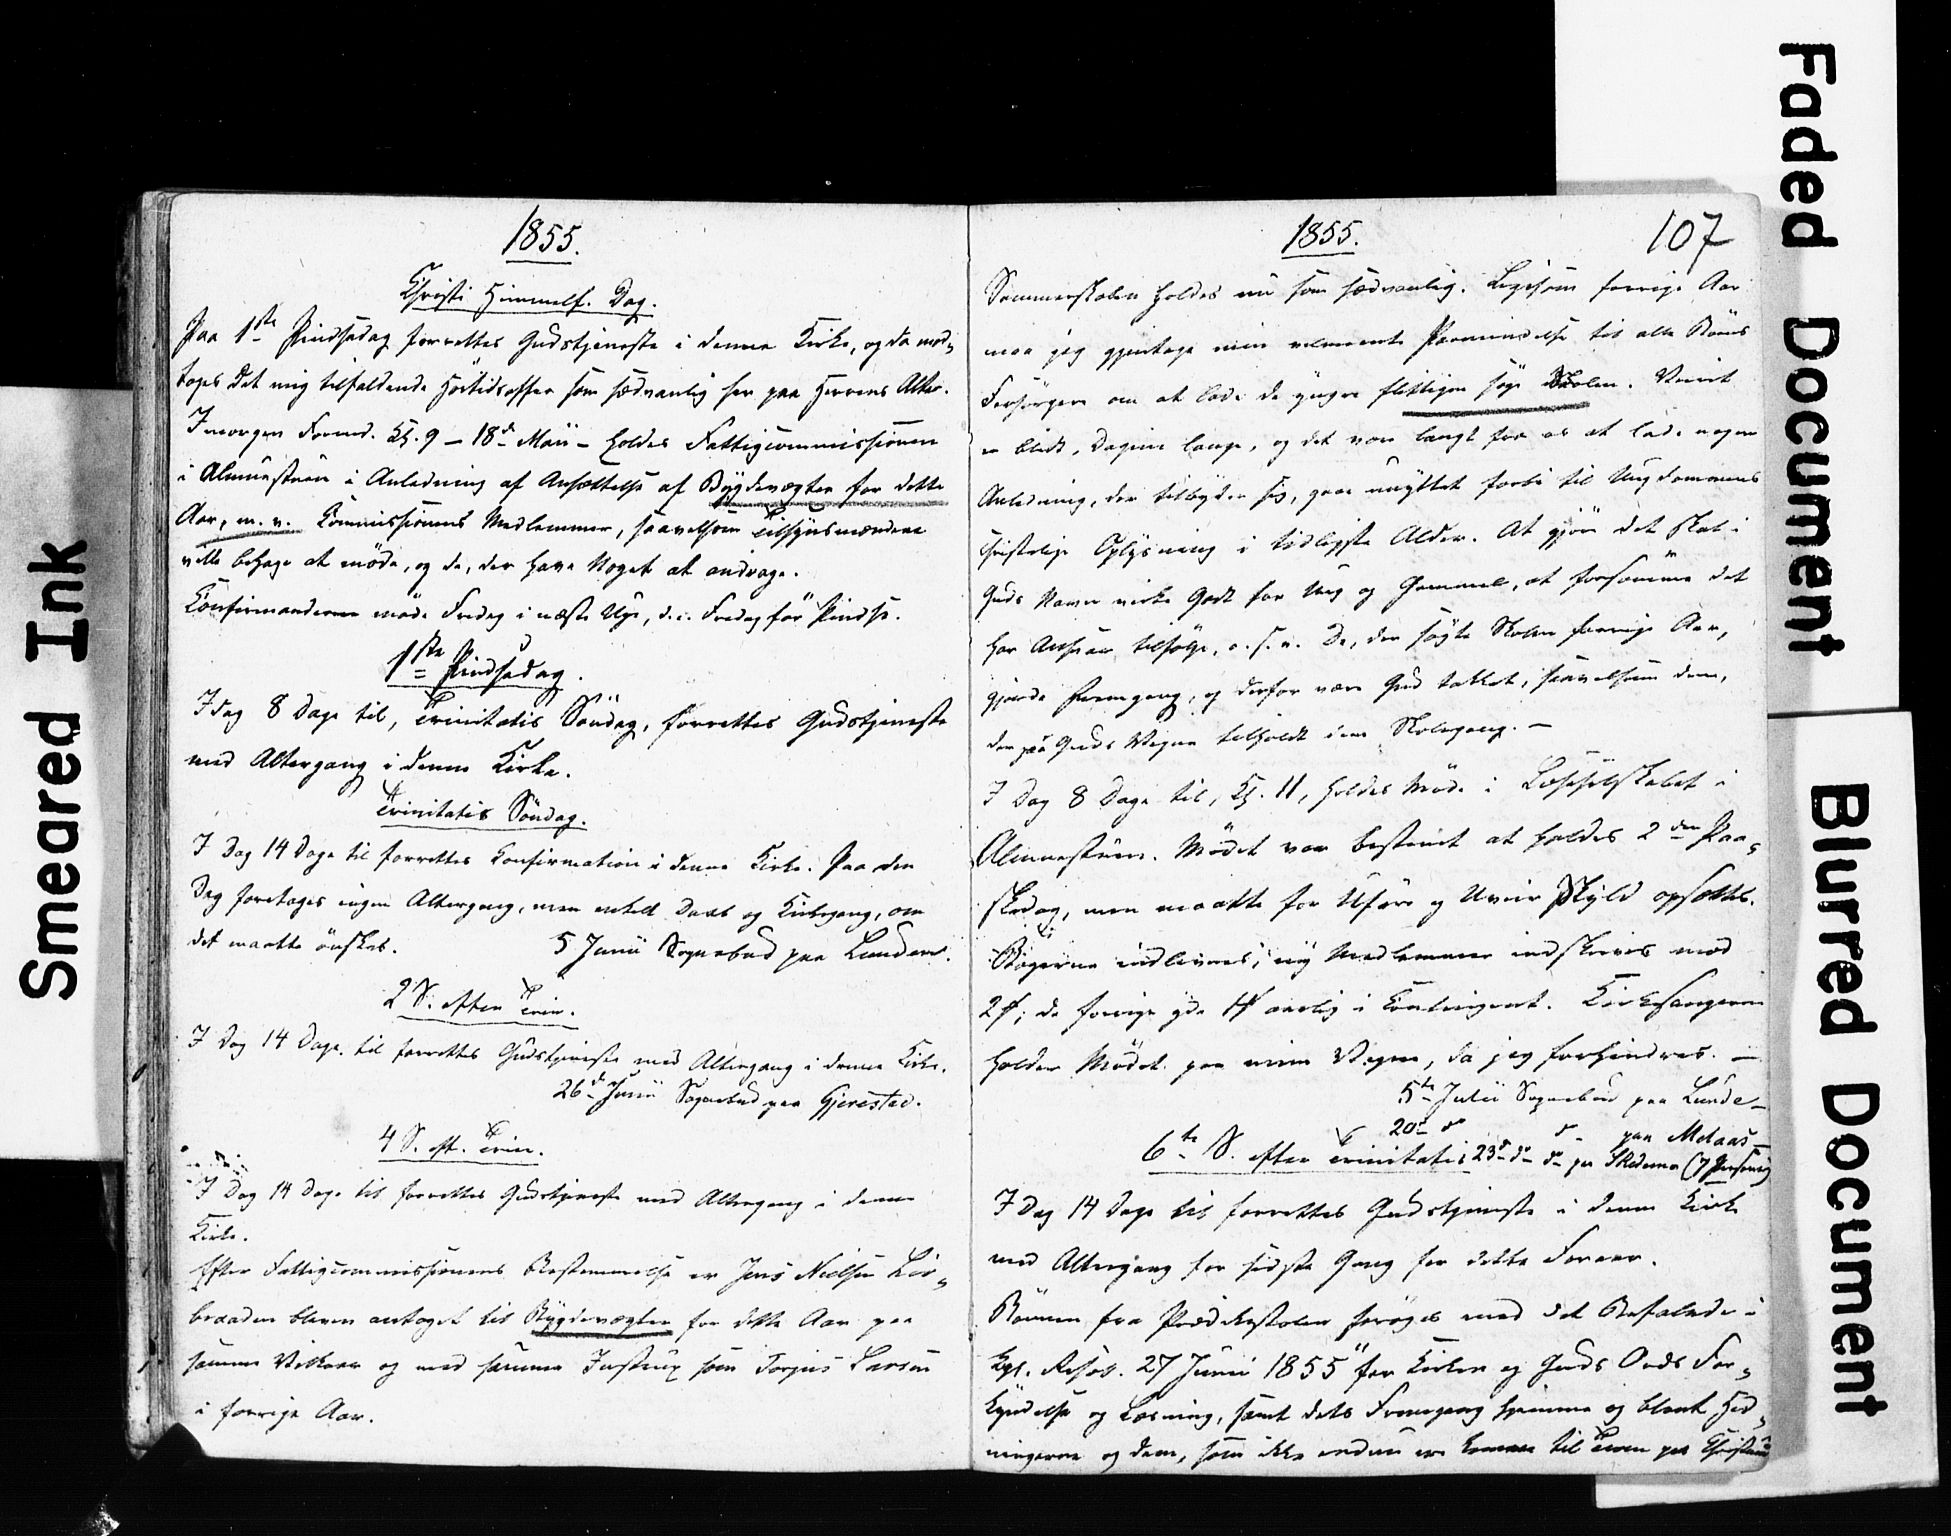 1855.
Christi Himmelf. Dag.
Paa 1ste Pindsedag forrettes Gudstjeneste i denne Kirke, og da mod-
tages det mig tilfaldende Høitidsoffer som sædvanlig her paa Herrens Alter.
Imorgen Formd. Kl. 9 – 18de Maii – holdes Fattigcommissionen
i Almuestuen i Anledning af Ansættelse af Bygdevægter for dette
Aar, m. v. Commissionens Medlemmer, saavelsom Tilsynsmændene
ville behage at møde, og de, der have Noget at andrage.
Confirmanderne møde Fredag i næste Uge, d.e. Fredag før Pindse.
1ste Pindsedag.
Idag 8 Dage til, Trinitatis Søndag, forrettes Gudstjeneste
med Altergang i denne Kirke.
Trinitatis Søndag.
I Dag 14 Dage til forrettes Confirmation i denne Kirke. Paa den
Dag foretages ingen Altergang, men enhver Daab og Kirkegang, om
det maatte ønskes.
5 Junii Sognebud paa Lunden.
2 S. efter Trin.
I Dag 14 Dage til forrettes Gudstjeneste med Altergang i denne Kirke.
26de Junii Sognebud paa Gjerestad.
4 S. eft. Trin.
I Dag 14 Dage til forrettes Gudstjeneste med Altergang i denne
Kirke.
Efter Fattigcommissionens Bestemmelse er Jens Nielsen
bleven antaget til Bygdevægter for dette Aar paa
samme Vilkaar og med samme Instrux som Torjus Larsen
i forrige Aar.
1855. 107
Sommerskolen holdes nu som sædvanlig. Ligesom forrige Aar
maa jeg gjentage min velmeente Paamindelse til alle Børns
Forsørgere om at lade de yngre flittigen søge Skolen. Veiret
er blidt, Dagene lange, og det være langt fra os at lade nogen
Anledning, der tilbyder sig, gaae unyttet forbi til Ungdommens
christelige Oplysning i tidligste Alder. At gjøre det skal i
Guds Navn virke Godt for Ung og Gammel, at forsømme det
har Ansvar tilfølge, o. s. v. De, der søgte Skolen forrige Aar,
gjorde Fremgang, og derfor være Gud takket, saavelsom dem,
der paa Guds Vegne tilholdt dem Skolegang. –
I Dag 8 Dage til, Kl. 11, holdes Møde i Læseselskabet i
Almuestuen. Mødet var bestemt at holdes 2den Paa-
skedag, men maatte for Uføre og Uveir Skyld opsættes.
Bøgerne indleveres; ny Medlemmer indskrives med
2 ; de forrige yde 1 aarlig i Contingent. Kirkesangeren
holder Mødet paa mine Vegne, da jeg forhindres. –
5te Julii Sognebud paa Lunde –
20de do do paa Melaas –
6te S. efter Trinitatis 23de do do paa (7 Personer)
I Dag 14 Dage til forrettes Gudstjeneste i denne Kirke
med Altergang for sidste Gang for dette Foraar.
Bønnen fra Prædikestolen forøges med det Befalede i
Kgl. Resol. 27 Junii 1855 "for Kirken og Guds Ords For-
kyndelse og Læsning, samt dets Fremgang hjemme og blant Hed-
ningerne og dem, som ikke endnu ere komne til Troen paa Christum
Smeared Ink
Faded Document
Blurred Document